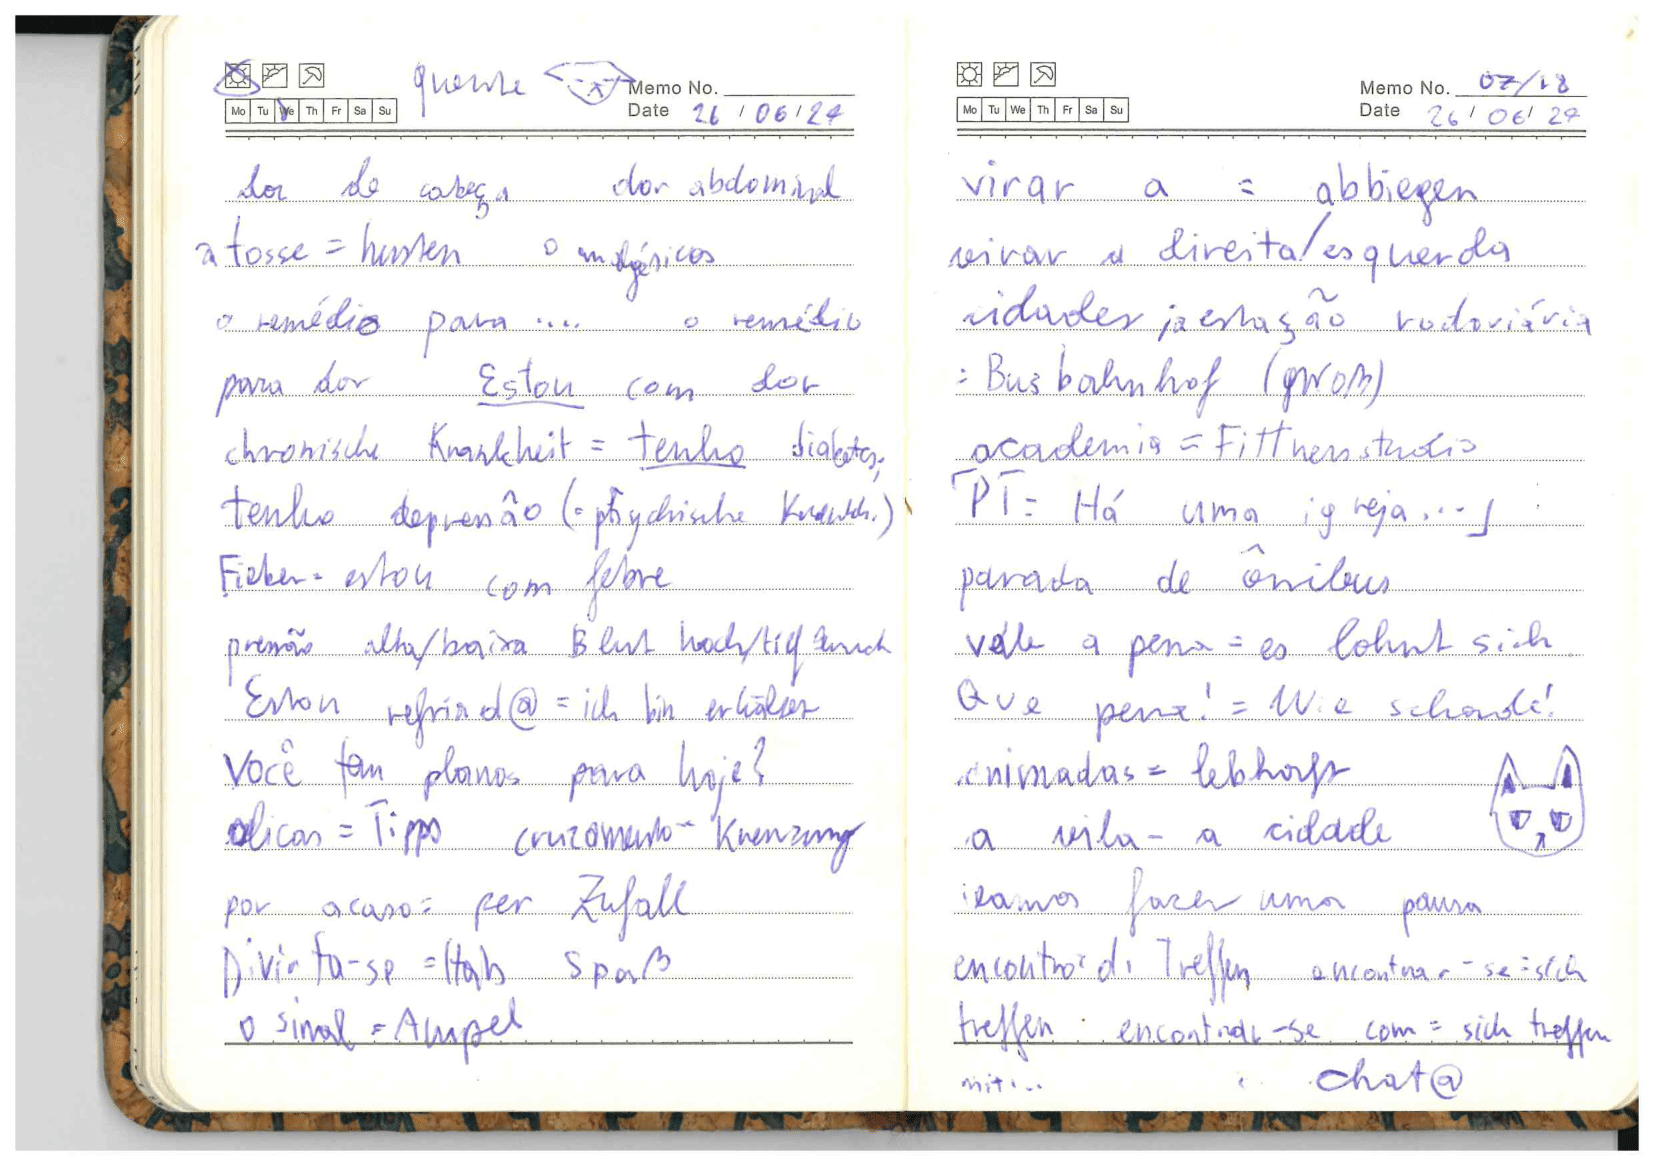 quente
Memo No.
Mo Tu We Th Fr Sa Su
Date 26 / 06 / 24
dor de cabeça dor abdominal
a tosse = husten o analgésicos
o remédio para .... o remédio
para dor Estou com dor
chronische Krankheit = tenho diabetes,
tenho depressão (= psychische Krankh.)
Fieber = estou com febre
pressão alta/baixa Blut hoch/tief druck
Estou refriad@ = ich bin erkältet
Você tem planos para hoje?
dicas = Tipps cruzamento - Kreuzung
por acaso = per Zufall
Divirta-se = Hab Spaß
o sinal = Ampel
Memo No. 07/18
Mo Tu We Th Fr Sa Su
Date 26 / 06 / 24
virar a = abbiegen
virar a direita/esquerda
cidades ; a estação rodoviária
= Busbahnhof (groß)
academia = Fittnessstudio
「PT = Há uma igreja ...」
parada de ônibus
vale a pena = es lohnt sich
Que pena! = Wie schade!
animadas = lebhaft
a vila - a cidade
vamos fazer uma pausa
encontro = d. Treffen encontrar-se = sich
treffen encontrar-se com = sich treffen
mit ... chat@